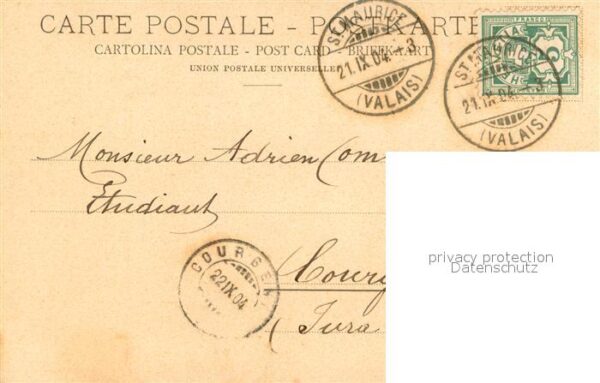 CARTE POSTALE - P
CARTOLINA POSTALE - POST CARD - BRIEFKAART
UNION POSTALE UNIVERSELLE
ST. MAURICE
21.IX.04.
(VALAIS)
FRANCO
5
ST. MAURICE
21.IX.04.
(VALAIS)
Monsieur Adrien Com
Etudiant
COURGEN
22 IX 04
Courg
Jura
privacy protection
Datenschutz